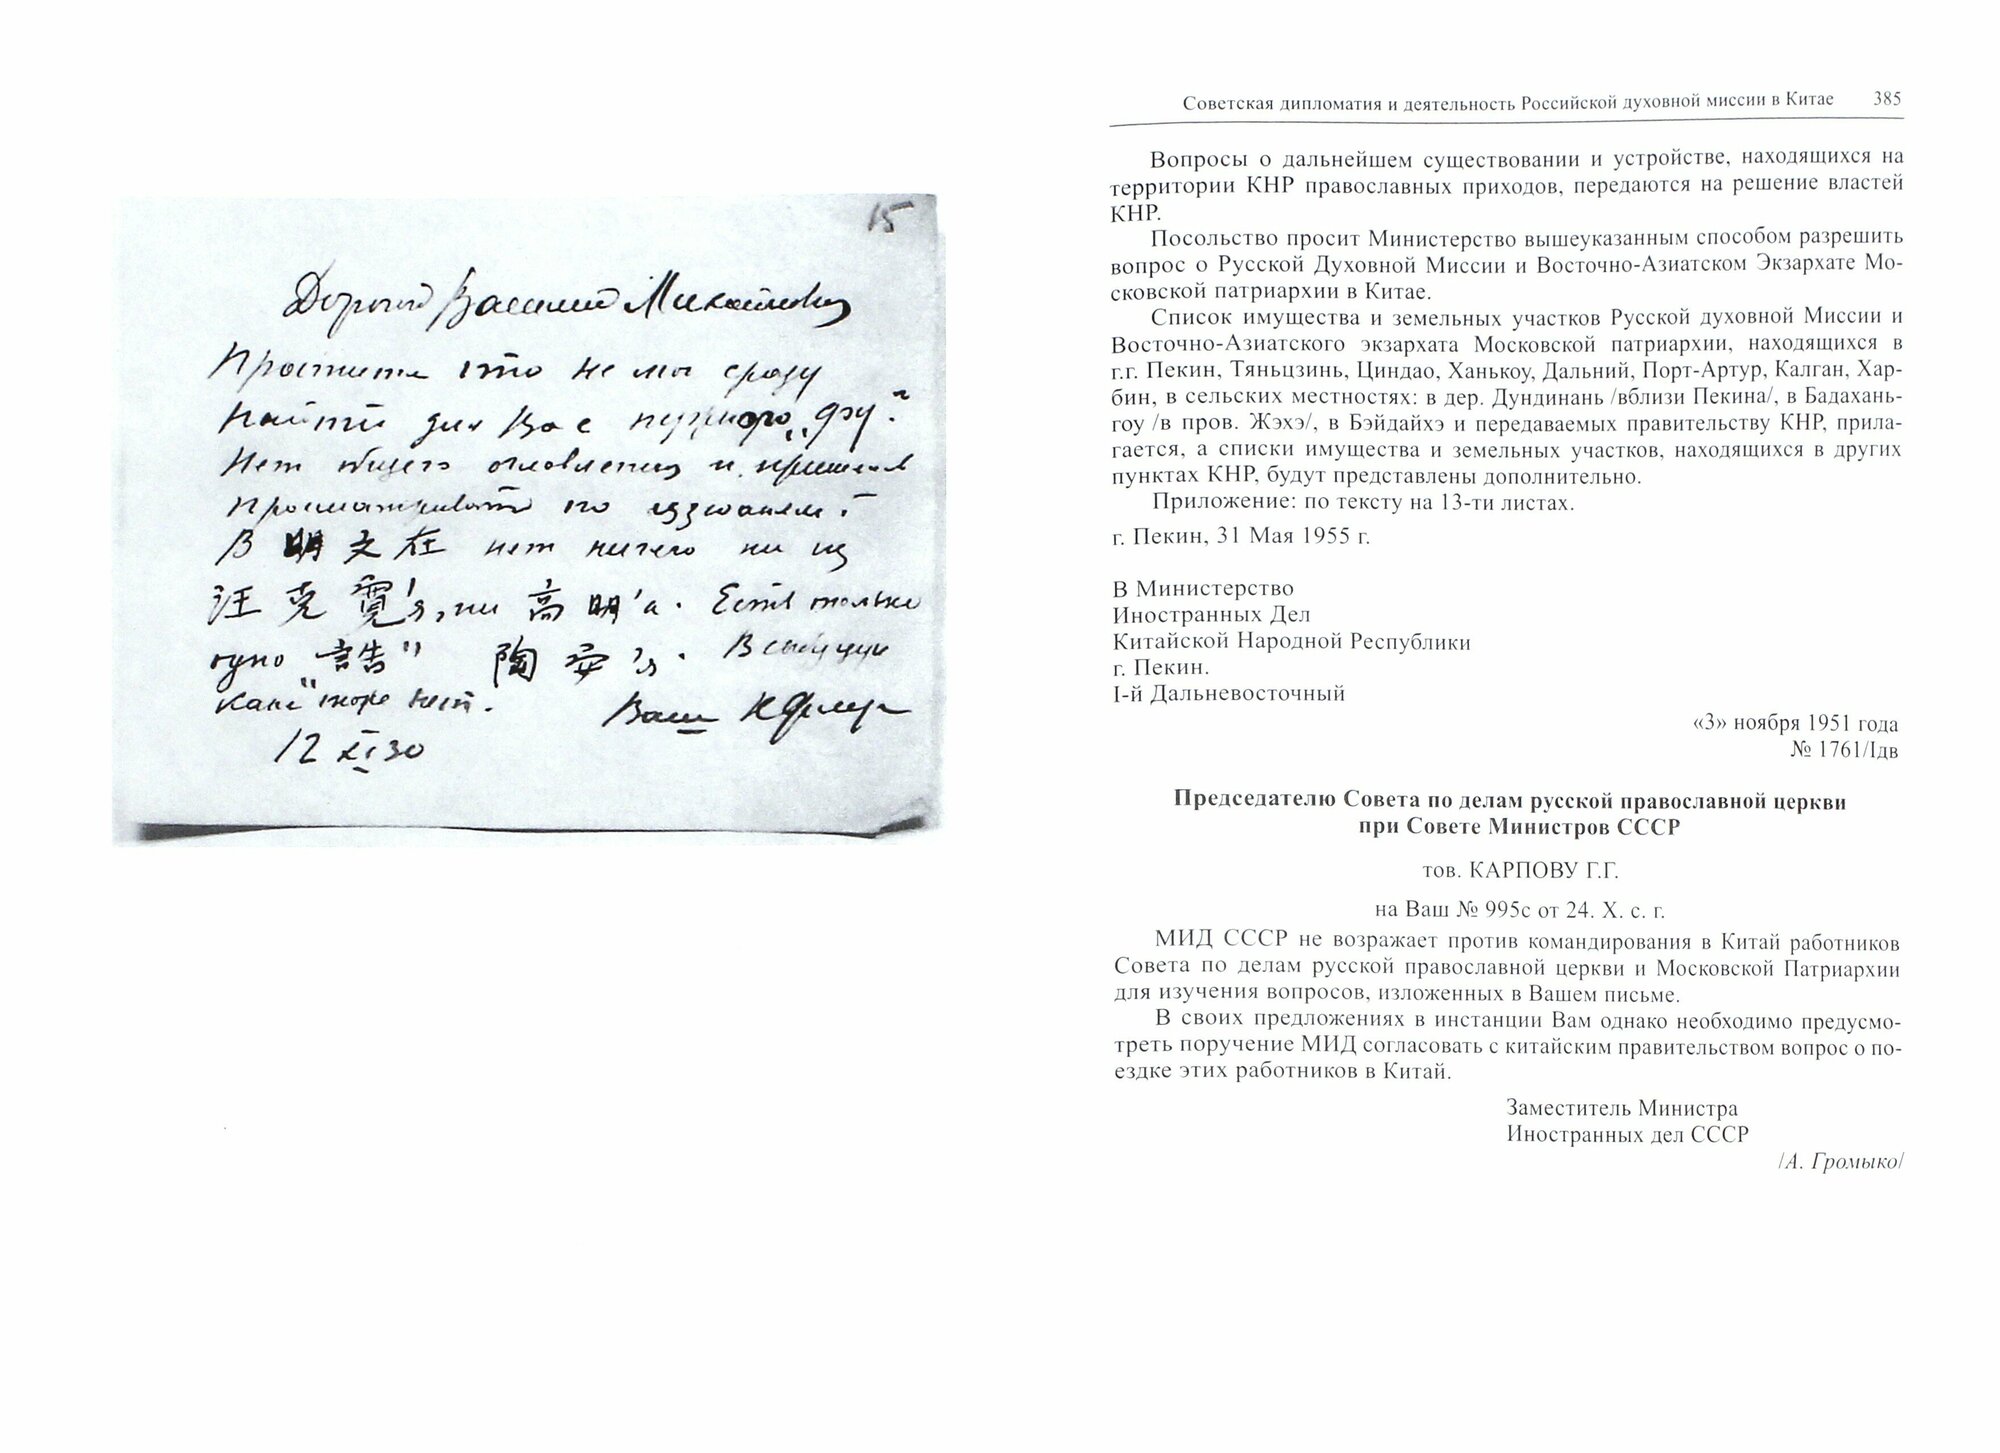 15
Дорогой Василий Михайлович
Простите что не мог сразу
найти для Вас нужного „фу“.
Нет общего оглавления и
просматривать по цзюаням.
В 明文在 нет ничего ни из
汪克寬'я, ни 高明'а. Есть только
одно 誥" 陶安'я.
нет. Ваш
12 XI 30
Советская дипломатия и деятельность Российской духовной миссии в Китае 385
Вопросы о дальнейшем существовании и устройстве, находящихся на
территории КНР православных приходов, передаются на решение властей
КНР.
Посольство просит Министерство вышеуказанным способом разрешить
вопрос о Русской Духовной Миссии и Восточно-Азиатском Экзархате Мо-
сковской патриархии в Китае.
Список имущества и земельных участков Русской духовной Миссии и
Восточно-Азиатского экзархата Московской патриархии, находящихся в
г.г. Пекин, Тяньцзинь, Циндао, Ханькоу, Дальний, Порт-Артур, Калган, Хар-
бин, в сельских местностях: в дер. Дундинань /вблизи Пекина/, в Бадахань-
гоу /в пров. Жэхэ/, в Бэйдайхэ и передаваемых правительству КНР, прила-
гается, а списки имущества и земельных участков, находящихся в других
пунктах КНР, будут представлены дополнительно.
Приложение: по тексту на 13-ти листах.
г. Пекин, 31 Мая 1955 г.
В Министерство
Иностранных Дел
Китайской Народной Республики
г. Пекин.
I-й Дальневосточный
«3» ноября 1951 года
№ 1761/Iдв
Председателю Совета по делам русской православной церкви
при Совете Министров СССР
тов. КАРПОВУ Г.Г.
на Ваш № 995с от 24. X. с. г.
МИД СССР не возражает против командирования в Китай работников
Совета по делам русской православной церкви и Московской Патриархии
для изучения вопросов, изложенных в Вашем письме.
В своих предложениях в инстанции Вам однако необходимо предусмо-
треть поручение МИД согласовать с китайским правительством вопрос о по-
ездке этих работников в Китай.
Заместитель Министра
Иностранных дел СССР
/А. Громыко/